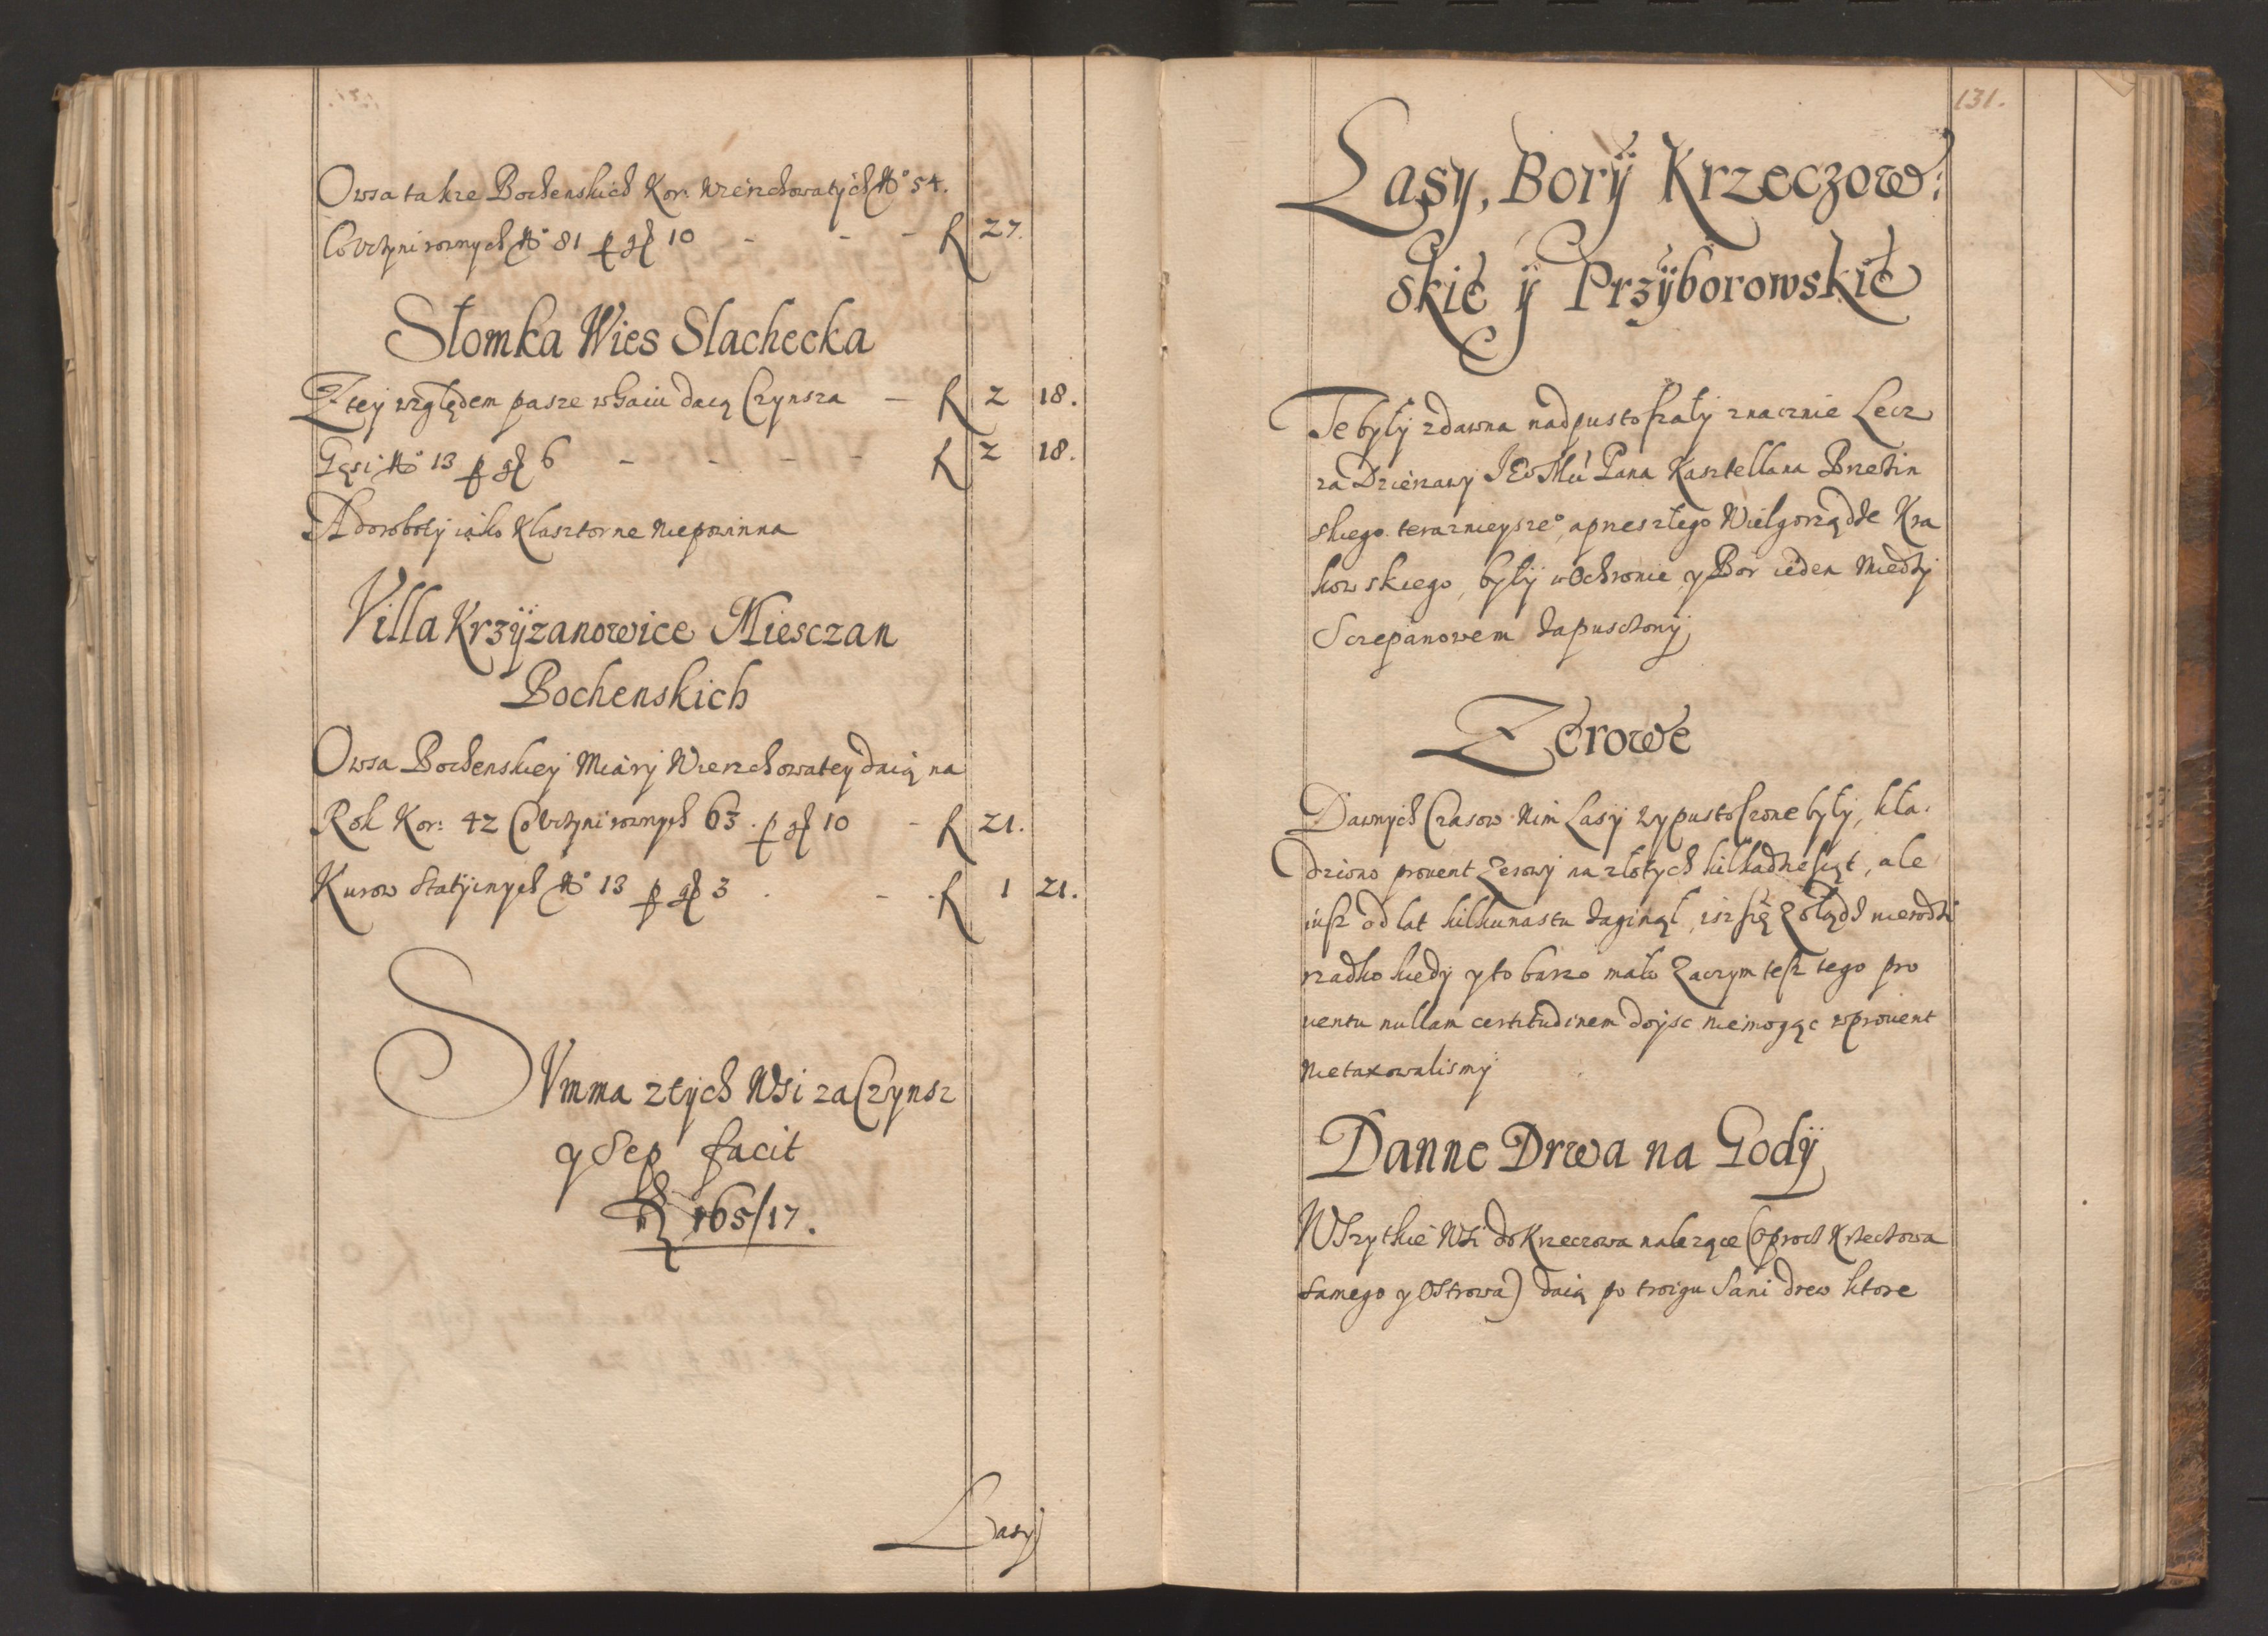 Owsa takze Bochenskich Kor: Wierzchowatych No 54.
Co Vczyni rownych No 81 p gl 10 - - - f 27.
Słomka Wies Slachecka
Z tey względem pasze w Gaiu daią Czynsza - f 2 18.
Gęsi No 13 p gl 6 - - - - f 2 18.
A do roboty iako Klasztorne Niepowinna
Villa Krzÿzanowice Miesczan
Bochenskich
Owsa Bochenskiey Miary Wierzchowatey daią na
Rok Kor: 42 Co Vczyni rownych 63. p gl 10 - f 21.
Kurow Statÿinych No 13 p gl 3 - f 1 21.
SVmma z tych Wsi za Czynsz
y Sep facit
fl 165/17.
Lasy
131.
Lasy, Borÿ Krzeczow:
skie ÿ Przÿborowskie
Te były zdawna nadpustoszały znacznie Lecz
za Dzierzawy JEo Mci Pana Kasztellana Brzezin
skiego teraznieyszeo, a przeszłego Wielgorządce Kra
kowskiego, były w Ochronie y Bor ieden Miedzy
Sczepanowem Zapusczony
Zerowe
Dawnych Czasow Nim Lasy wypustoszone były, kła.
dziono prouent Zerowy na złotych kilkadziesiąt, ale
iusz od lat kilkunastu Zaginął, isz się Zołądz nierodzi
rzadko kiedy y to barzo mało Zaczym tesz tego pro
uentu nullam certitudinem doysc niemogąc w prouent
Nietaxowalismy
Danne Drwa na Godÿ
Wszytkie Wsi do Krzeczowa nalezące (oprocz Krzeczowa
samego y Ostrowa) daią po troigu Sani drew ktore